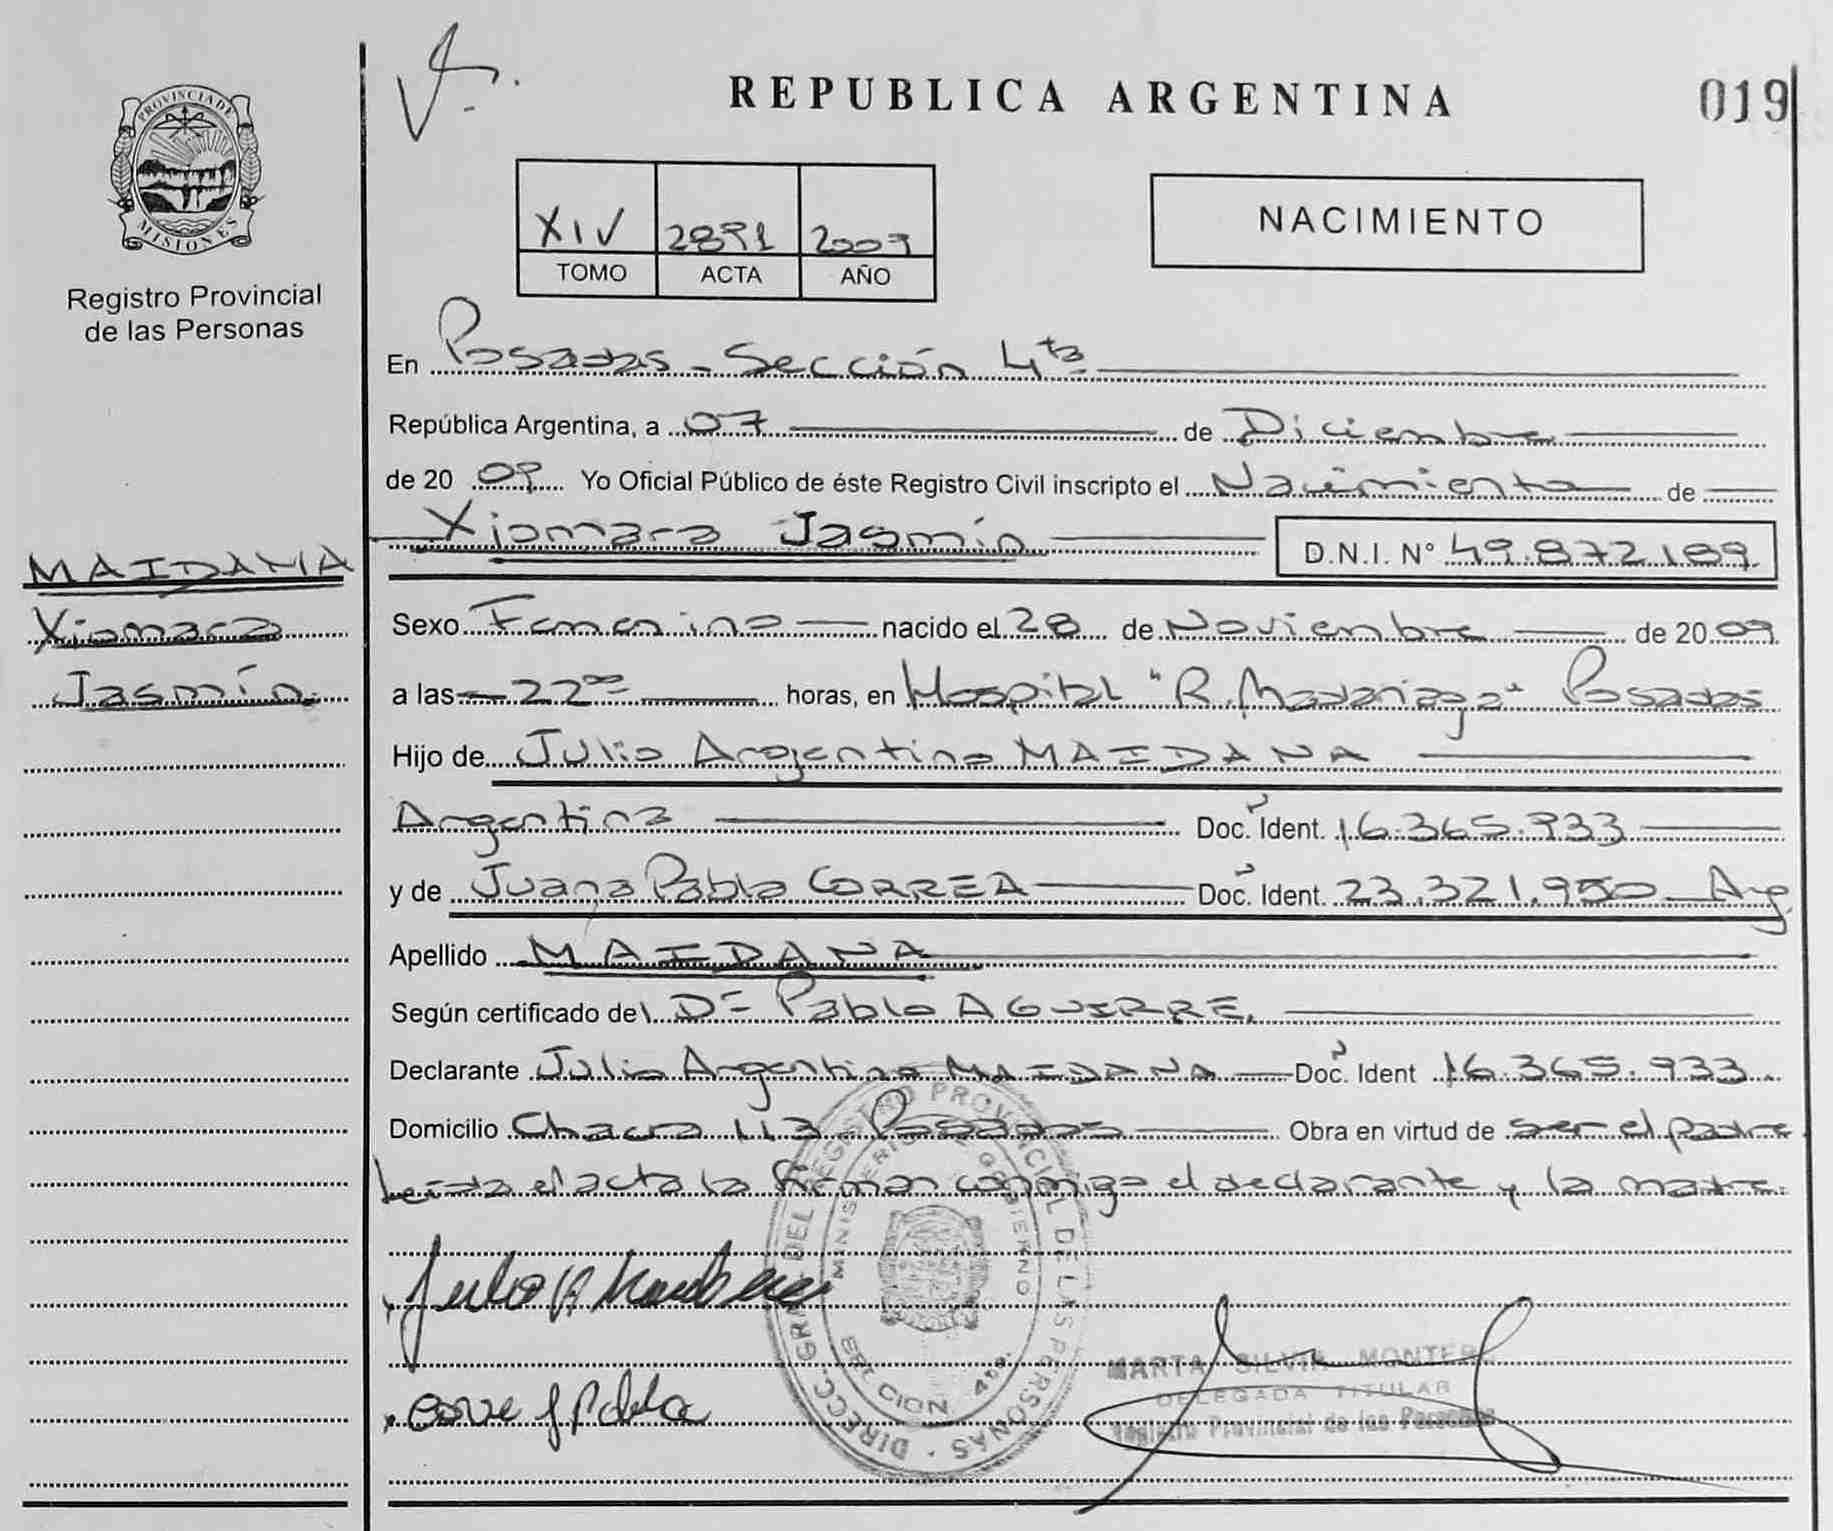 REPUBLICA ARGENTINA
019
PROVINCIA DE
MISIONES
Registro Provincial
de las Personas
XIV 2891 2009
TOMO ACTA AÑO
NACIMIENTO
En Posadas - Sección 4ta
República Argentina, a 07 de Diciembre
de 20 09 Yo Oficial Público de éste Registro Civil inscripto el Nacimiento de
Xiomara Jasmín D.N.I. N° 49.872.189
MAIDANA
Xiomara
Jasmín
Sexo Femenino nacido el 28 de Noviembre de 20 09
a las 22 00 horas, en Hospital "R. Madariaga" Posadas
Hijo de Julio Argentino MAIDANA
Argentina Doc. Ident. 16.365.933
y de Juana Pabla CORREA Doc. Ident. 23.321.950 Arg.
Apellido MAIDANA
Según certificado del Dr Pablo AGUIRRE.
Declarante Julio Argentino MAIDANA Doc. Ident 16.365.933.
Domicilio Chacra 113 - Posadas Obra en virtud de ser el padre
Leída el acta la firman conmigo el declarante y la madre.
DIRECC. GRAL. DEL REGISTRO PROVINCIAL DE LAS PERSONAS
MINISTERIO GOBIERNO
Julio A Maidana
MARTA SILVIA MONTERO
DELEGADA TITULAR
Registro Provincial de las Personas